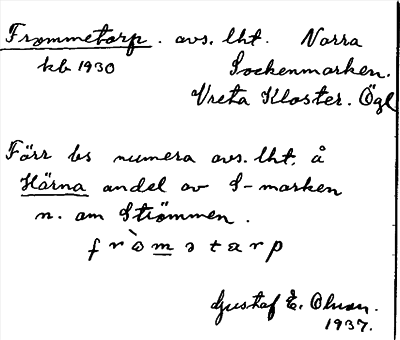 Frommetorp. avs. lht. Norra
kb 1930 Sockenmarken.
Vreta Kloster. Ögl
Förr bs numera avs. lht. å
Härna andel av S-marken
n. om Strömmen.
fròmstarp
Gustaf E.
1937.